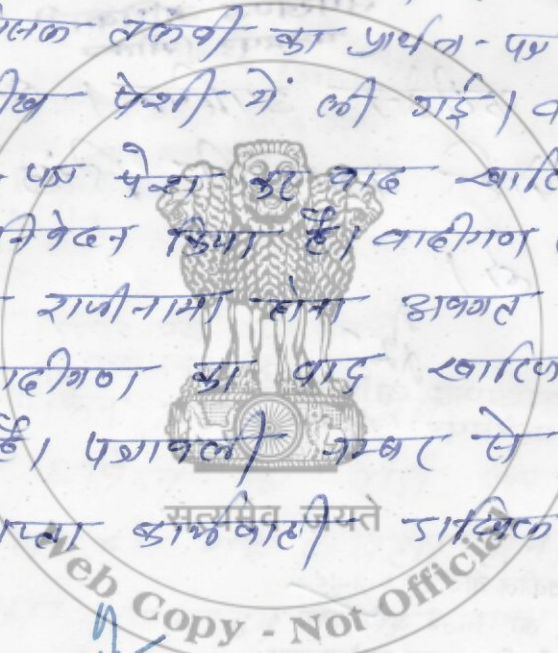 तलबी का प्रार्थना-पत्र
पेशी में ली गई।
-पत्र पेश कर वाद खारि
निवेदन किया है। वादीगण
राजीनामा होना अवगत
दीगण का वाद खारिज
है। पत्रावली नम्बर से
कार्यवाही दाखिल
सत्यमेव जयते
Web Copy - Not Official